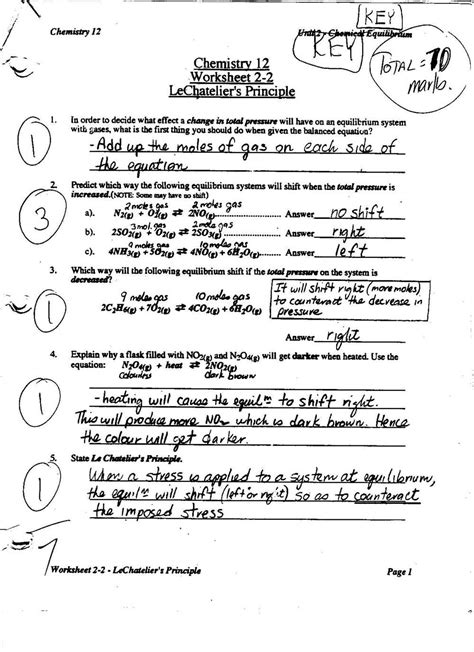 KEY
Chemistry 12
Unit 2 - Chemical Equilibrium
KEY
Chemistry 12
Worksheet 2-2
LeChatelier's Principle
TOTAL = 70
marks.
1. In order to decide what effect a change in total pressure will have on an equilibrium system
with gases, what is the first thing you should do when given the balanced equation?
1
- Add up the moles of gas on each side of
the equation
2. Predict which way the following equilibrium systems will shift when the total pressure is
increased.(NOTE: Some may have no shift)
3
2 moles gas 2 moles gas
a). N2(g) + O2(g) ⇄ 2NO(g) Answer no shift
3 mol. gas 2 mole gas
b). 2SO2(g) + O2(g) ⇄ 2SO3(g) Answer right
9 moles gas 10 moles gas
c). 4NH3(g) + 5O2(g) ⇄ 4NO(g) + 6H2O(g) Answer left
3. Which way will the following equilibrium shift if the total pressure on the system is
decreased?
1
9 moles gas 10 moles gas
2C2H6(g) + 7O2(g) ⇄ 4CO2(g) + 6H2O(g)
It will shift right (more moles)
to counteract the decrease in
pressure
Answer right
4. Explain why a flask filled with NO2(g) and N2O4(g) will get darker when heated. Use the
equation: N2O4(g) + heat ⇄ 2NO2(g)
Colourless dark brown
1
- heating will cause the equilm to shift right.
This will produce more NO2 which is dark brown. Hence
the colour will get darker.
5. State Le Chatelier's Principle.
1
When a stress is applied to a system at equilibrium,
the equilm will shift (left or right) so as to counteract
the imposed stress
7
Worksheet 2-2 - LeChatelier's Principle
Page 1